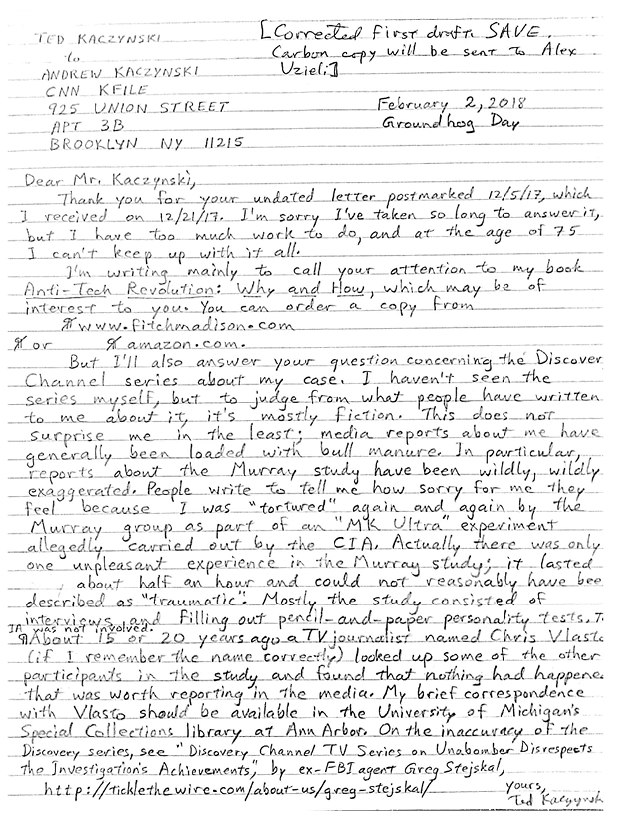 TED KACZYNSKI
to
ANDREW KACZYNSKI
CNN KFILE
925 UNION STREET
APT 3B
BROOKLYN NY 11215
[Corrected first draft. SAVE.
Carbon copy will be sent to Alex
Uzieli.]
February 2, 2018
Groundhog Day
Dear Mr. Kaczynski,
Thank you for your undated letter postmarked 12/5/17, which
I received on 12/21/17. I'm sorry I've taken so long to answer it,
but I have too much work to do, and at the age of 75
I can't keep up with it all.
I'm writing mainly to call your attention to my book
Anti-Tech Revolution: Why and How, which may be of
interest to you. You can order a copy from
www.fitchmadison.com
or amazon.com.
But I'll also answer your question concerning the Discover
Channel series about my case. I haven't seen the
series myself, but to judge from what people have written
to me about it, it's mostly fiction. This does not
surprise me in the least; media reports about me have
generally been loaded with bull manure. In particular,
reports about the Murray study have been wildly, wildly
exaggerated. People write to tell me how sorry for me they
feel because I was "tortured" again and again by the
Murray group as part of an "MK Ultra" experiment
allegedly carried out by the CIA. Actually there was only
one unpleasant experience in the Murray study; it lasted
about half an hour and could not reasonably have bee
described as "traumatic". Mostly the study consisted of
interviews and filling out pencil-and-paper personality tests. T
IA was not involved.
¶About 15 or 20 years ago a TV journalist named Chris Vlasto
(if I remember the name correctly) looked up some of the other
participants in the study and found that nothing had happene
that was worth reporting in the media. My brief correspondence
with Vlasto should be available in the University of Michigan's
Special Collections library at Ann Arbor. On the inaccuracy of the
Discovery series, see "Discovery Channel TV Series on Unabomber Disrespects
the Investigation's Achievements," by ex-FBI agent Greg Stejskal,
http://ticklethewire.com/about-us/greg-stejskal/
yours,
Ted Kaczynski